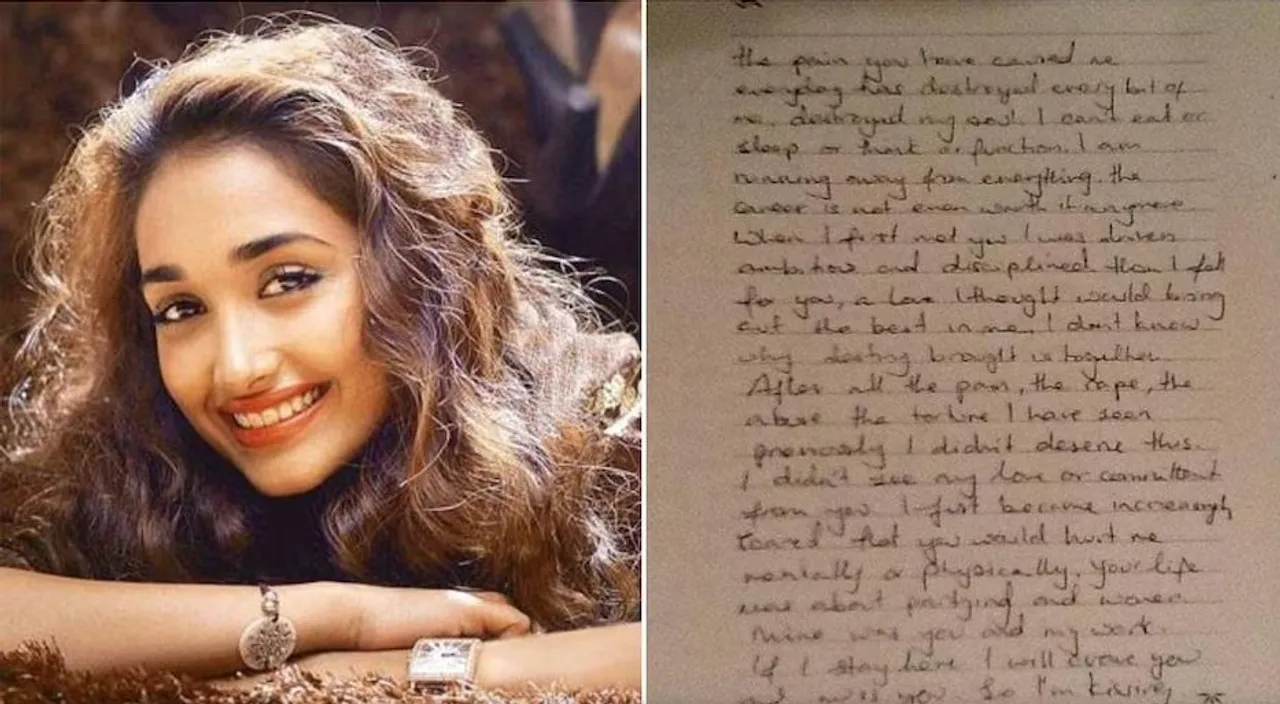 the pain you have caused me
everyday has destroyed every bit of
me, destroyed my soul. I can't eat or
sleep or think or function. I am
running away from everything. the
career is not even worth it anymore
When I first met you I was driven
ambitious and disciplined then I fell
for you, a love I thought would bring
out the best in me. I don't know
why destiny brought us together
After all the pain, the rape, the
abuse the torture I have seen
previously I didn't deserve this.
I didn't see any love or commitment
from you I just became increasingly
scared that you would hurt me
mentally or physically. Your life
was about partying and women
mine was you and my work.
If I stay here I will crave you
and miss you So I'm kissing